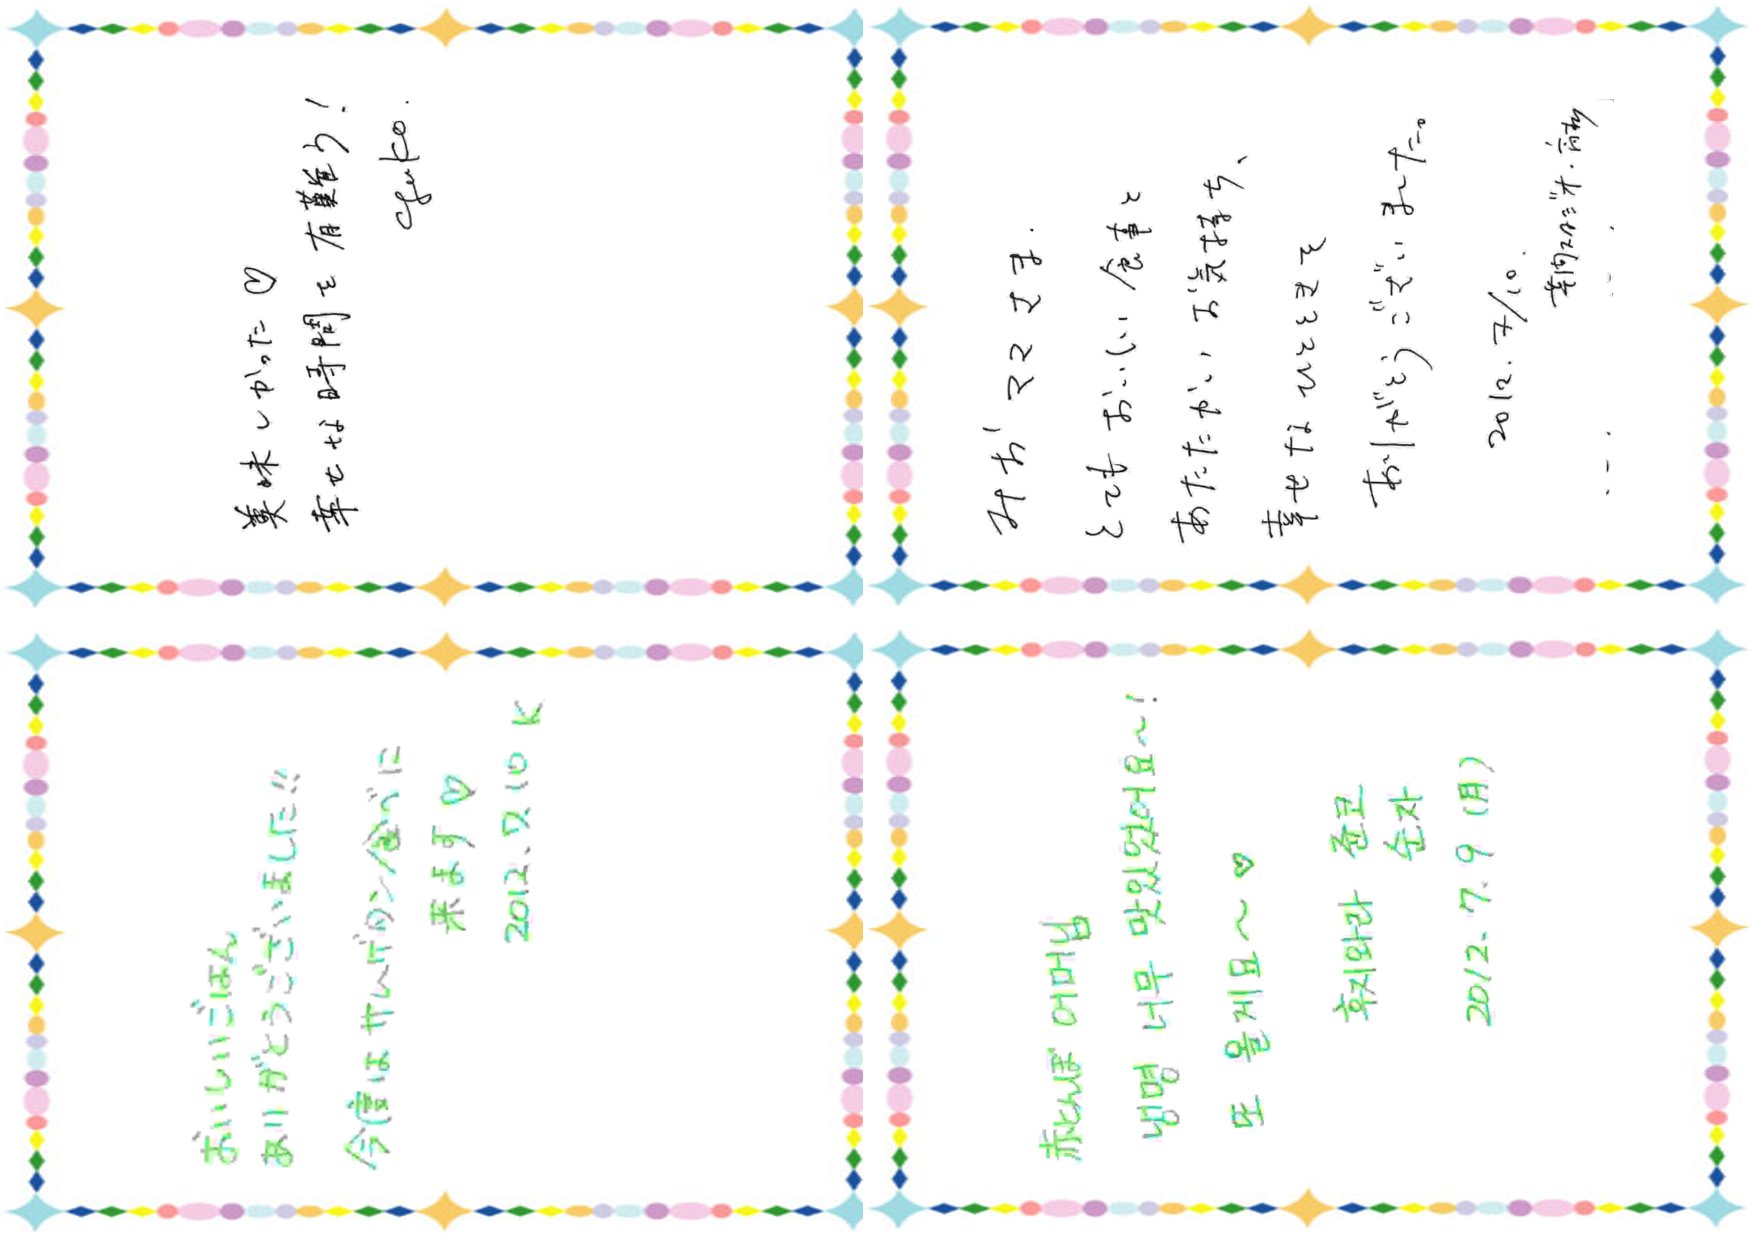 美味しかった♡
幸せな時間を有難う!
みおママさま.
とてもおいしい食事と
あたたかいお気持ち、
幸せなひとときを
ありがとうございました。
2012. 7/10.
おいしいごはん
ありがとうございました!!
今度はサムゲタン食べに
来ます♡
2012. 7. 10 K
赤とんぼ 어머님
냉명 너무 맛있었어요~!
또 올게요~♡
후지와라 준코
순자
2012. 7. 9 (月)